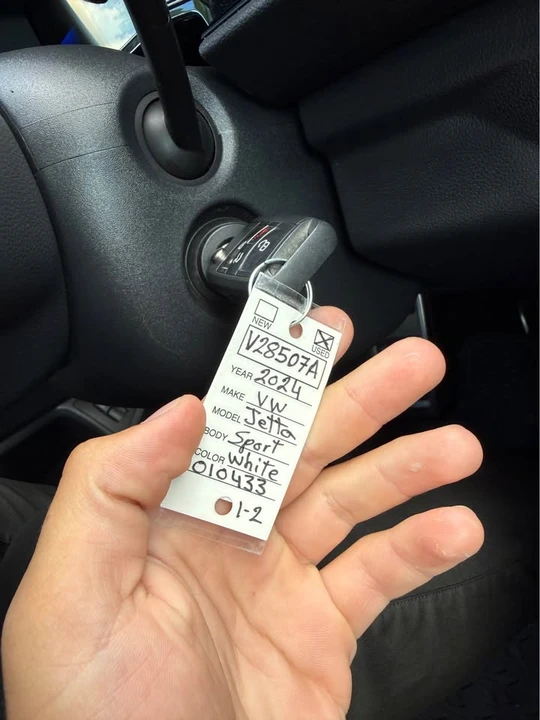 NEW
USED
V28507A
YEAR 2024
MAKE VW
MODEL Jetta
BODY Sport
COLOR White
010433
1-2